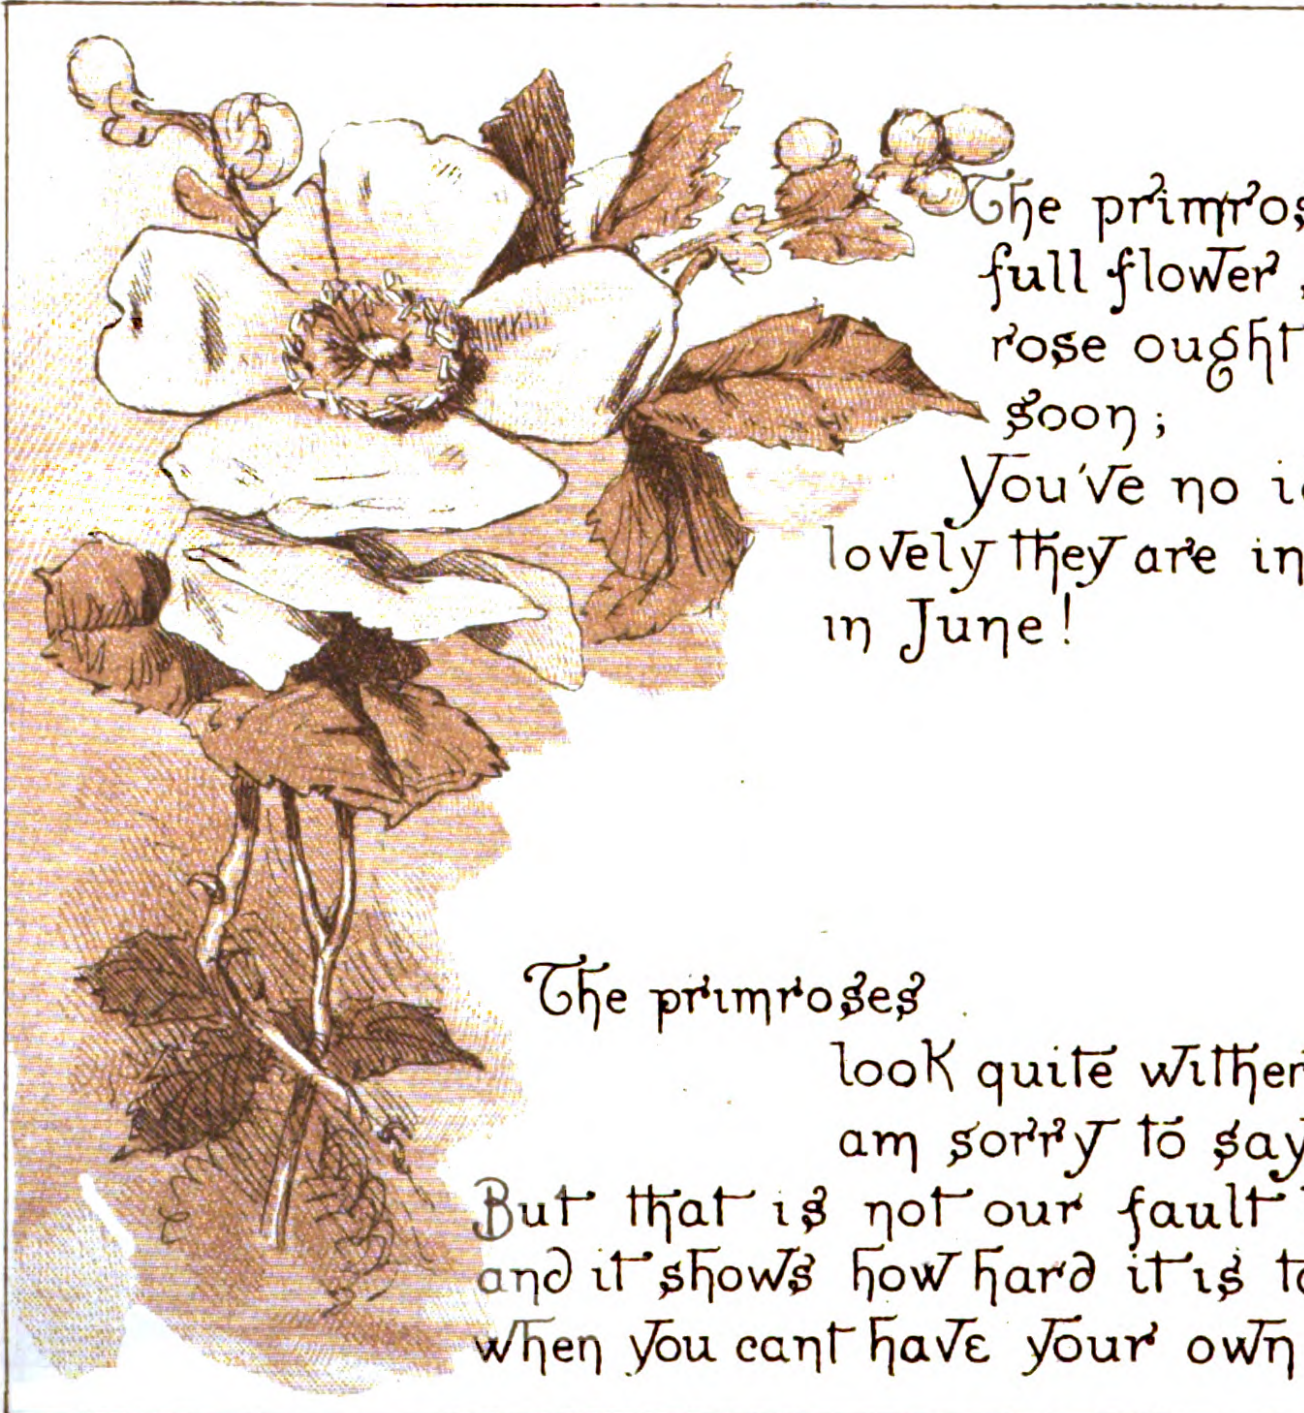 The primros
full flower,
rose ought
soon;
You've no i
lovely they are in
in June!
The primroses
look quite wither
am sorry to say
But that is not our fault
and it shows how hard it is to
when you cant have your own